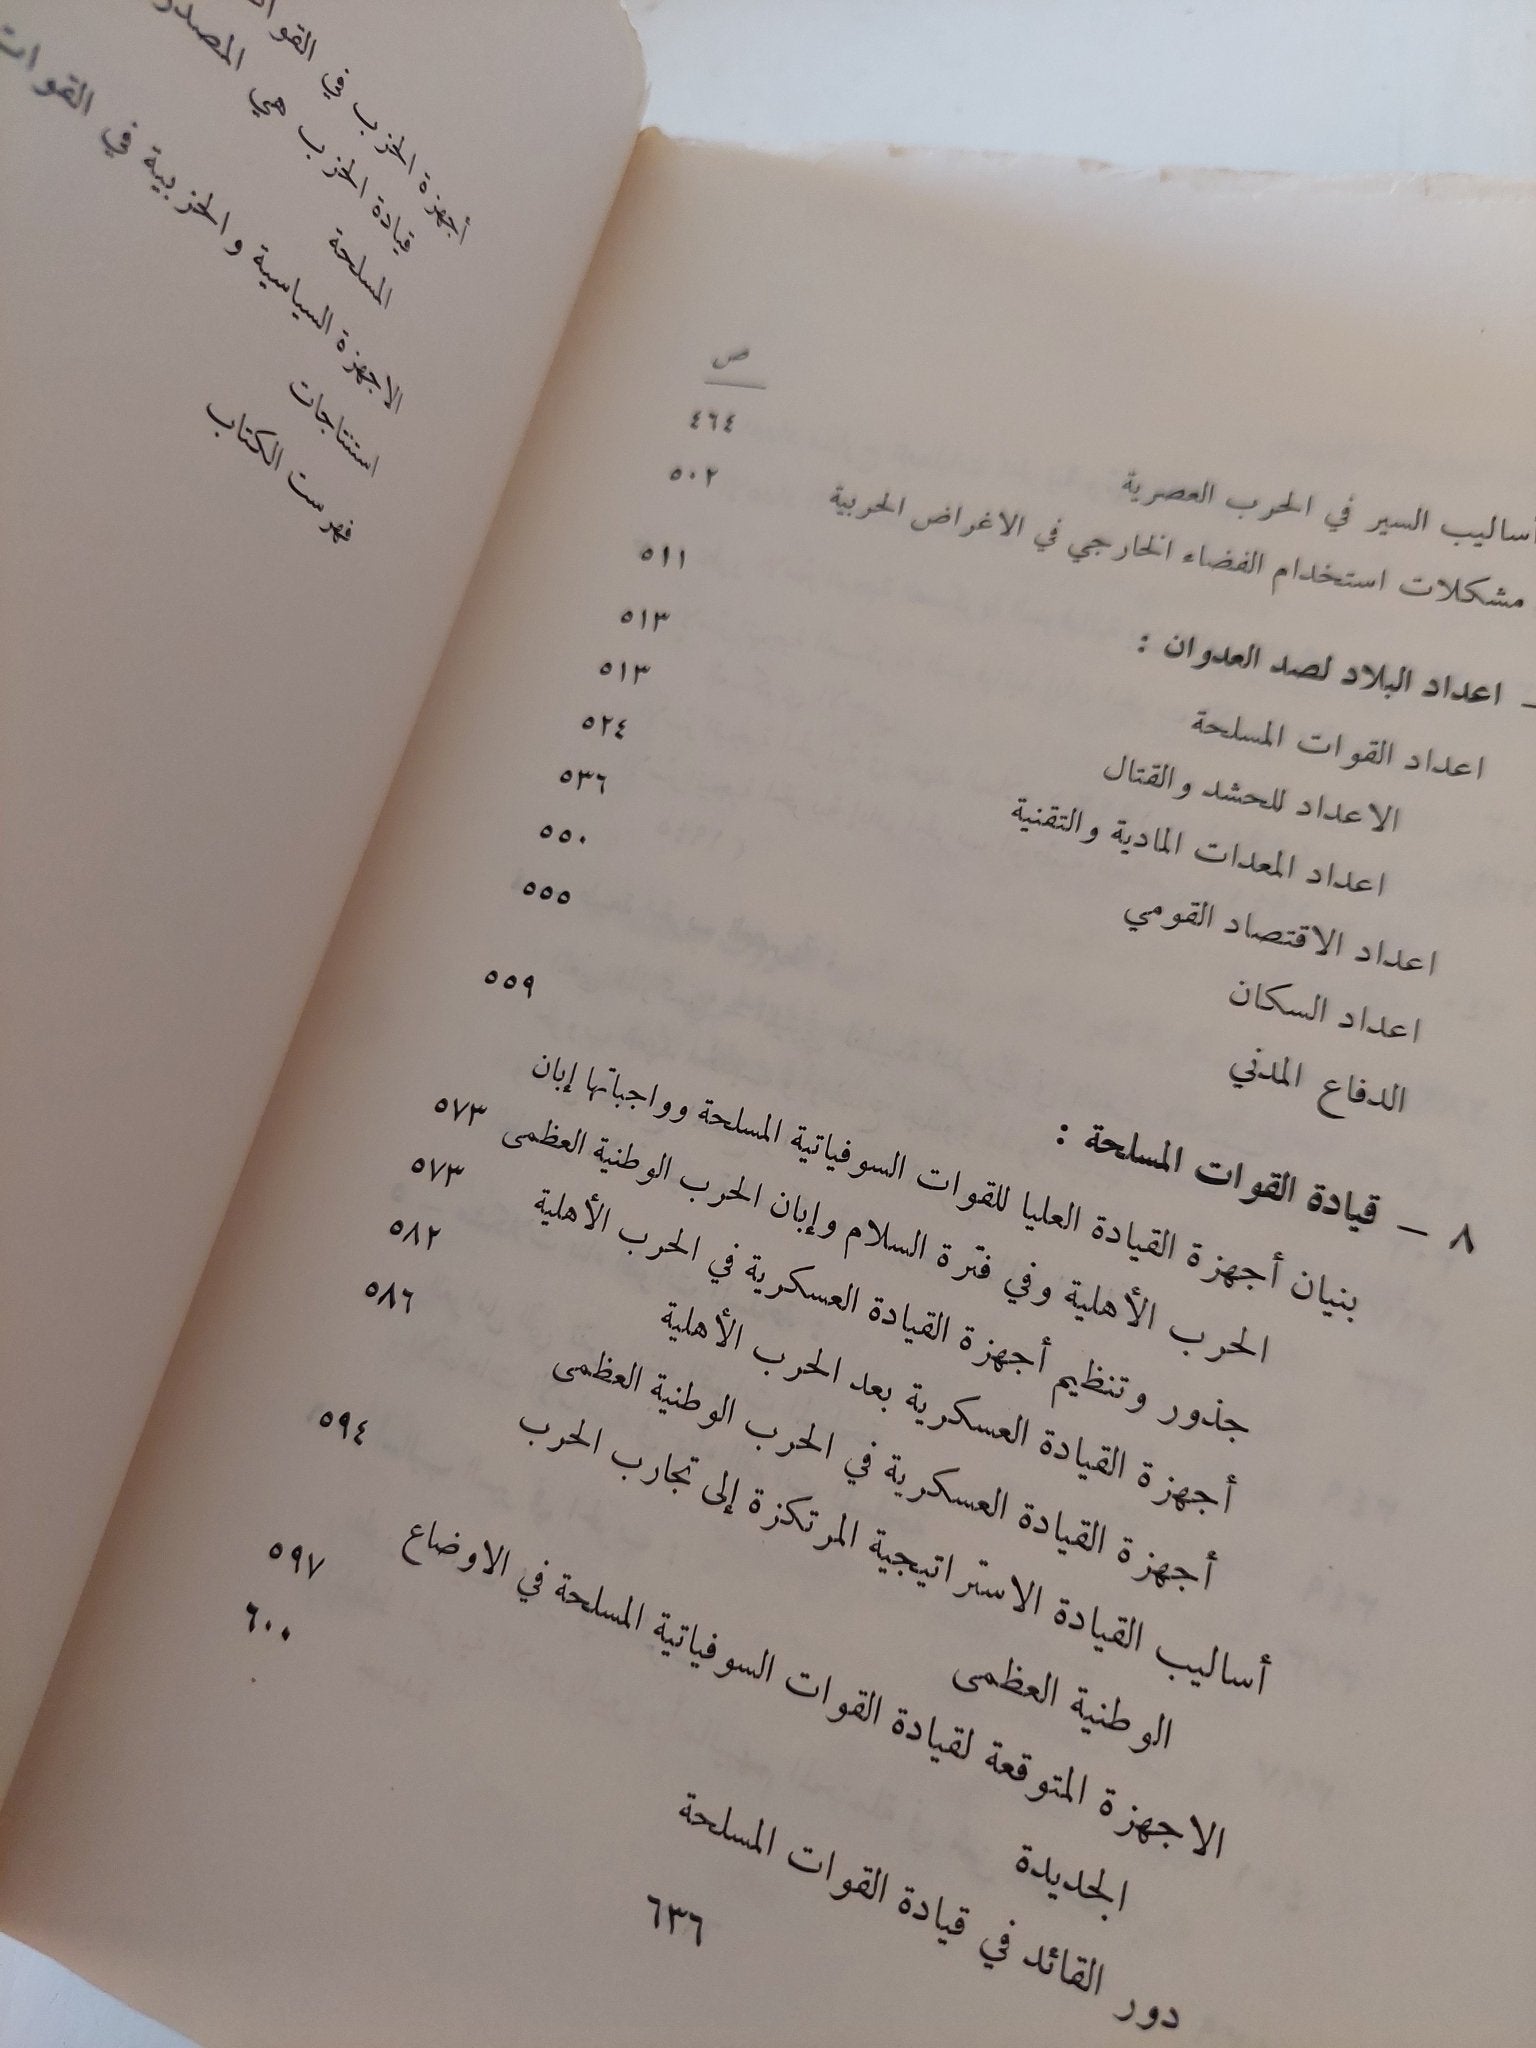 ص
أساليب السير في الحرب العصرية ٤٦٤
مشكلات استخدام الفضاء الخارجي في الاغراض الحربية ٥٠٢
– اعداد البلاد لصد العدوان : ٥١١
اعداد القوات المسلحة ٥١٣
الاعداد للحشد والقتال ٥١٣
اعداد المعدات المادية والتقنية ٥٢٤
اعداد الاقتصاد القومي ٥٣٦
اعداد السكان ٥٥٠
الدفاع المدني ٥٥٥
٨ – قيادة القوات المسلحة : ٥٥٩
بنيان أجهزة القيادة العليا للقوات السوفياتية المسلحة وواجباتها إبان
الحرب الأهلية وفي فترة السلام وإبان الحرب الوطنية العظمى ٥٧٣
جذور وتنظيم أجهزة القيادة العسكرية في الحرب الأهلية ٥٧٣
أجهزة القيادة العسكرية بعد الحرب الأهلية ٥٨٢
أجهزة القيادة العسكرية في الحرب الوطنية العظمى ٥٨٦
أساليب القيادة الاستراتيجية المرتكزة إلى تجارب الحرب
الوطنية العظمى ٥٩٤
الاجهزة المتوقعة لقيادة القوات السوفياتية المسلحة في الاوضاع
الجديدة ٥٩٧
دور القائد في قيادة القوات المسلحة ٦٠٠
٦٣٦
أجهزة الحزب في
قيادة الحزب هي
المسلحة
الاجهزة السياسية والحزبية في القوات
استنتاجات
فهرست الكتاب